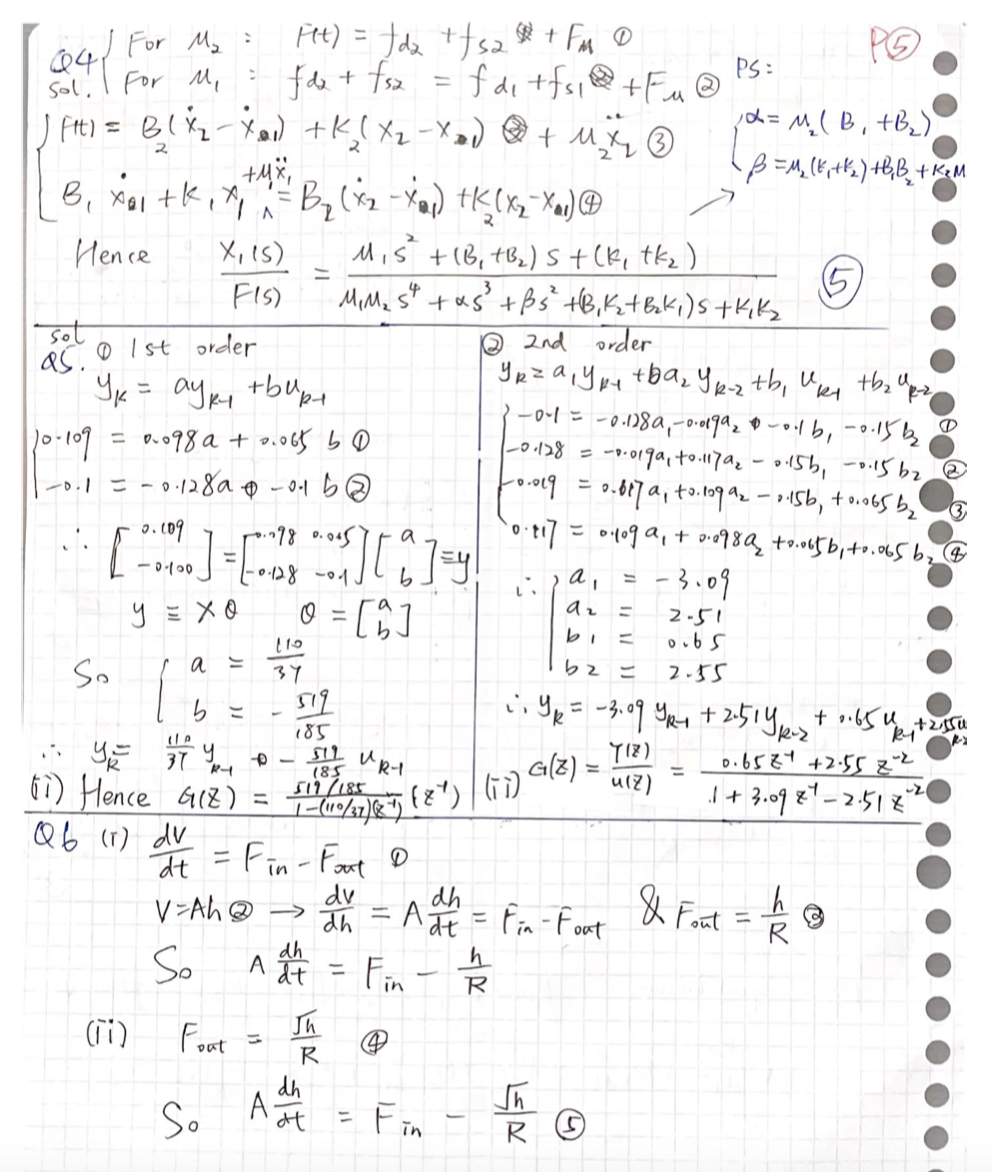 P⑤
Q4 sol. { For M₂ : F(t) = f_d2 + f_s2 + F_M ①
For M₁ : f_d2 + f_s2 = f_d1 + f_s1 + F_M ②
PS:
{ α = M₂(B₁+B₂)
β = M₂(K₁+K₂)+B₁B₂+K₂M
{ F(t) = B₂(ẋ₂ - ẋ₁) + K₂(x₂ - x₁) + M₂ẍ₂ ③
B₁ẋ₁ + K₁x₁ +Mẍ₁ = B₂(ẋ₂ - ẋ₁) + K₂(x₂ - x₁) ④
Hence X₁(s)/F(s) = (M₁s² + (B₁+B₂)s + (K₁+k₂)) / (M₁M₂s⁴ + αs³ + βs² + (B₁K₂+B₂K₁)s + K₁K₂) ⑤
sol
Q5. ① 1st order
y_k = ay_k-1 + bu_k-1
{ 0.109 = 0.098a + 0.065 b ①
-0.1 = -0.128a - 0.1 b ②
∴ [0.109 -0.100] = [0.098 0.065 -0.128 -0.1] [a b] = y
y = Xθ θ = [a b]
So { a = 110/37
b = - 519/185
∴ y_k = 110/37 y_k-1 - 519/185 u_k-1
(ii) Hence G(z) = (519/185)/(1-(110/37)(z⁻¹)) (z⁻¹)
② 2nd order
y_k = a₁y_k-1 + a₂y_k-2 + b₁u_k-1 + b₂u_k-2
{ -0.1 = -0.128a₁ - 0.019a₂ - 0.1b₁ - 0.15b₂ ①
-0.128 = -0.019a₁ + 0.117a₂ - 0.15b₁ - 0.15b₂ ②
-0.019 = 0.117a₁ + 0.109a₂ - 0.15b₁ + 0.065b₂ ③
0.117 = 0.109a₁ + 0.098a₂ + 0.065b₁ + 0.065b₂ ④
∴ { a₁ = -3.09
a₂ = 2.51
b₁ = 0.65
b₂ = 2.55
∴ y_k = -3.09 y_k-1 + 2.51y_k-2 + 0.65u_k-1 + 2.55u_k-2
(ii) G(z) = Y(z)/u(z) = (0.65z⁻¹ + 2.55z⁻²) / (1 + 3.09z⁻¹ - 2.51z⁻²)
Q6 (i) dv/dt = F_in - F_out ①
V=Ah ② → dv/dh = A dh/dt = F_in - F_out & F_out = h/R ③
So A dh/dt = F_in - h/R
(ii) F_out = √h/R ④
So A dh/dt = F_in - √h/R ⑤